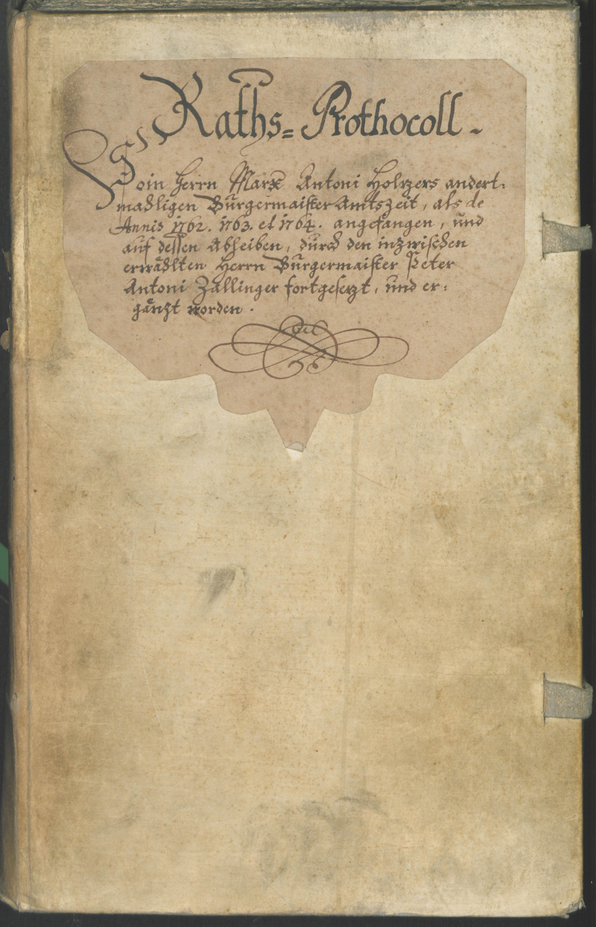 Raths= Prothocoll.
Von Herrn Marx Antoni Holzers andert=
mahligen Bürgermaister Amtszeit, als de
Annis 1762. 1763. et 1764. angefangen, und
auf dessen Ableiben, durch den inzwischen
erwählten Herrn Bürgermaister Peter
Antoni Zallinger fortgesezt, und er=
gänzt worden.